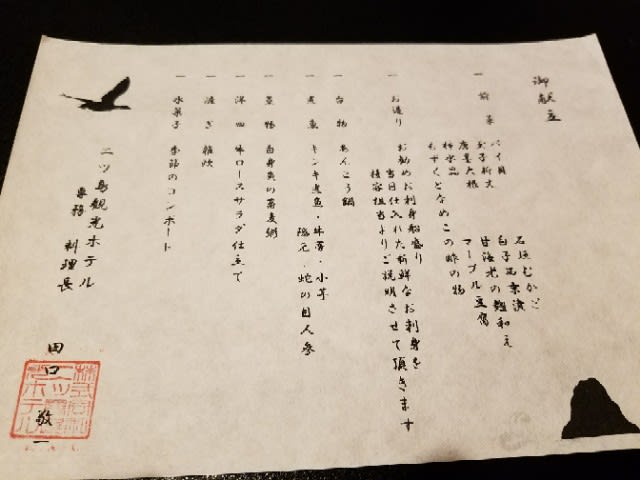 御献立
一 前菜 バイ貝 石垣むかご
白子西京漬
甘海老の麹和え
唐墨大根 マーブル豆腐
柿水晶
もずくとなめこの酢の物
一 お造り お勧めお刺身船盛り
当日仕入れた新鮮なお刺身を
接客担当よりご説明させて頂きます
一 台物 あんこう鍋
一 煮魚 キンキ煮魚・牛蒡・小芋
蛇の目人参
一 蒸物 白身魚の蕎麦粥
一 洋皿 牛ロースサラダ仕立て
一 凌ぎ 雑炊
一 水菓子 季節のコンポート
二ツ島観光ホテル
専務 料理長
田口 敬一